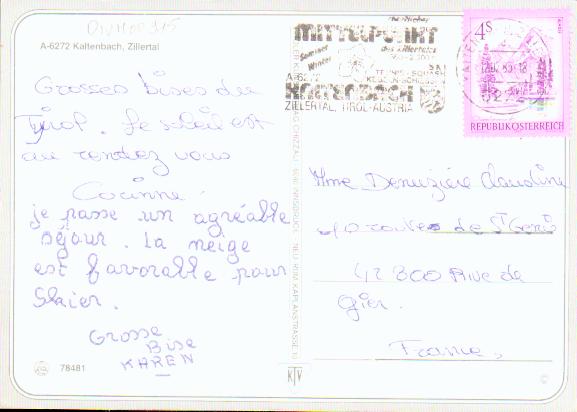 DIVHOR915
A-6272 Kaltenbach, Zillertal
Grosses bises du
Tyrol. Le soleil est
au rendez vous
Corinne.
je passe un agréable
séjour. La neige
est favorable pour
Skier.
Grosse
Bise
KAREN
78481
herrlicher
MITTELPUNKT
des Zillertales
Sommer
Winter
TENNIS - SQUASH
A-6272
KALTENBACH
ZILLERTAL, TIROL-AUSTRIA
4S
REPUBLIK ÖSTERREICH
Mme Denuzière Claudine
route de St Genis
42 800 Rive de
Gier.
France.
KTV
©